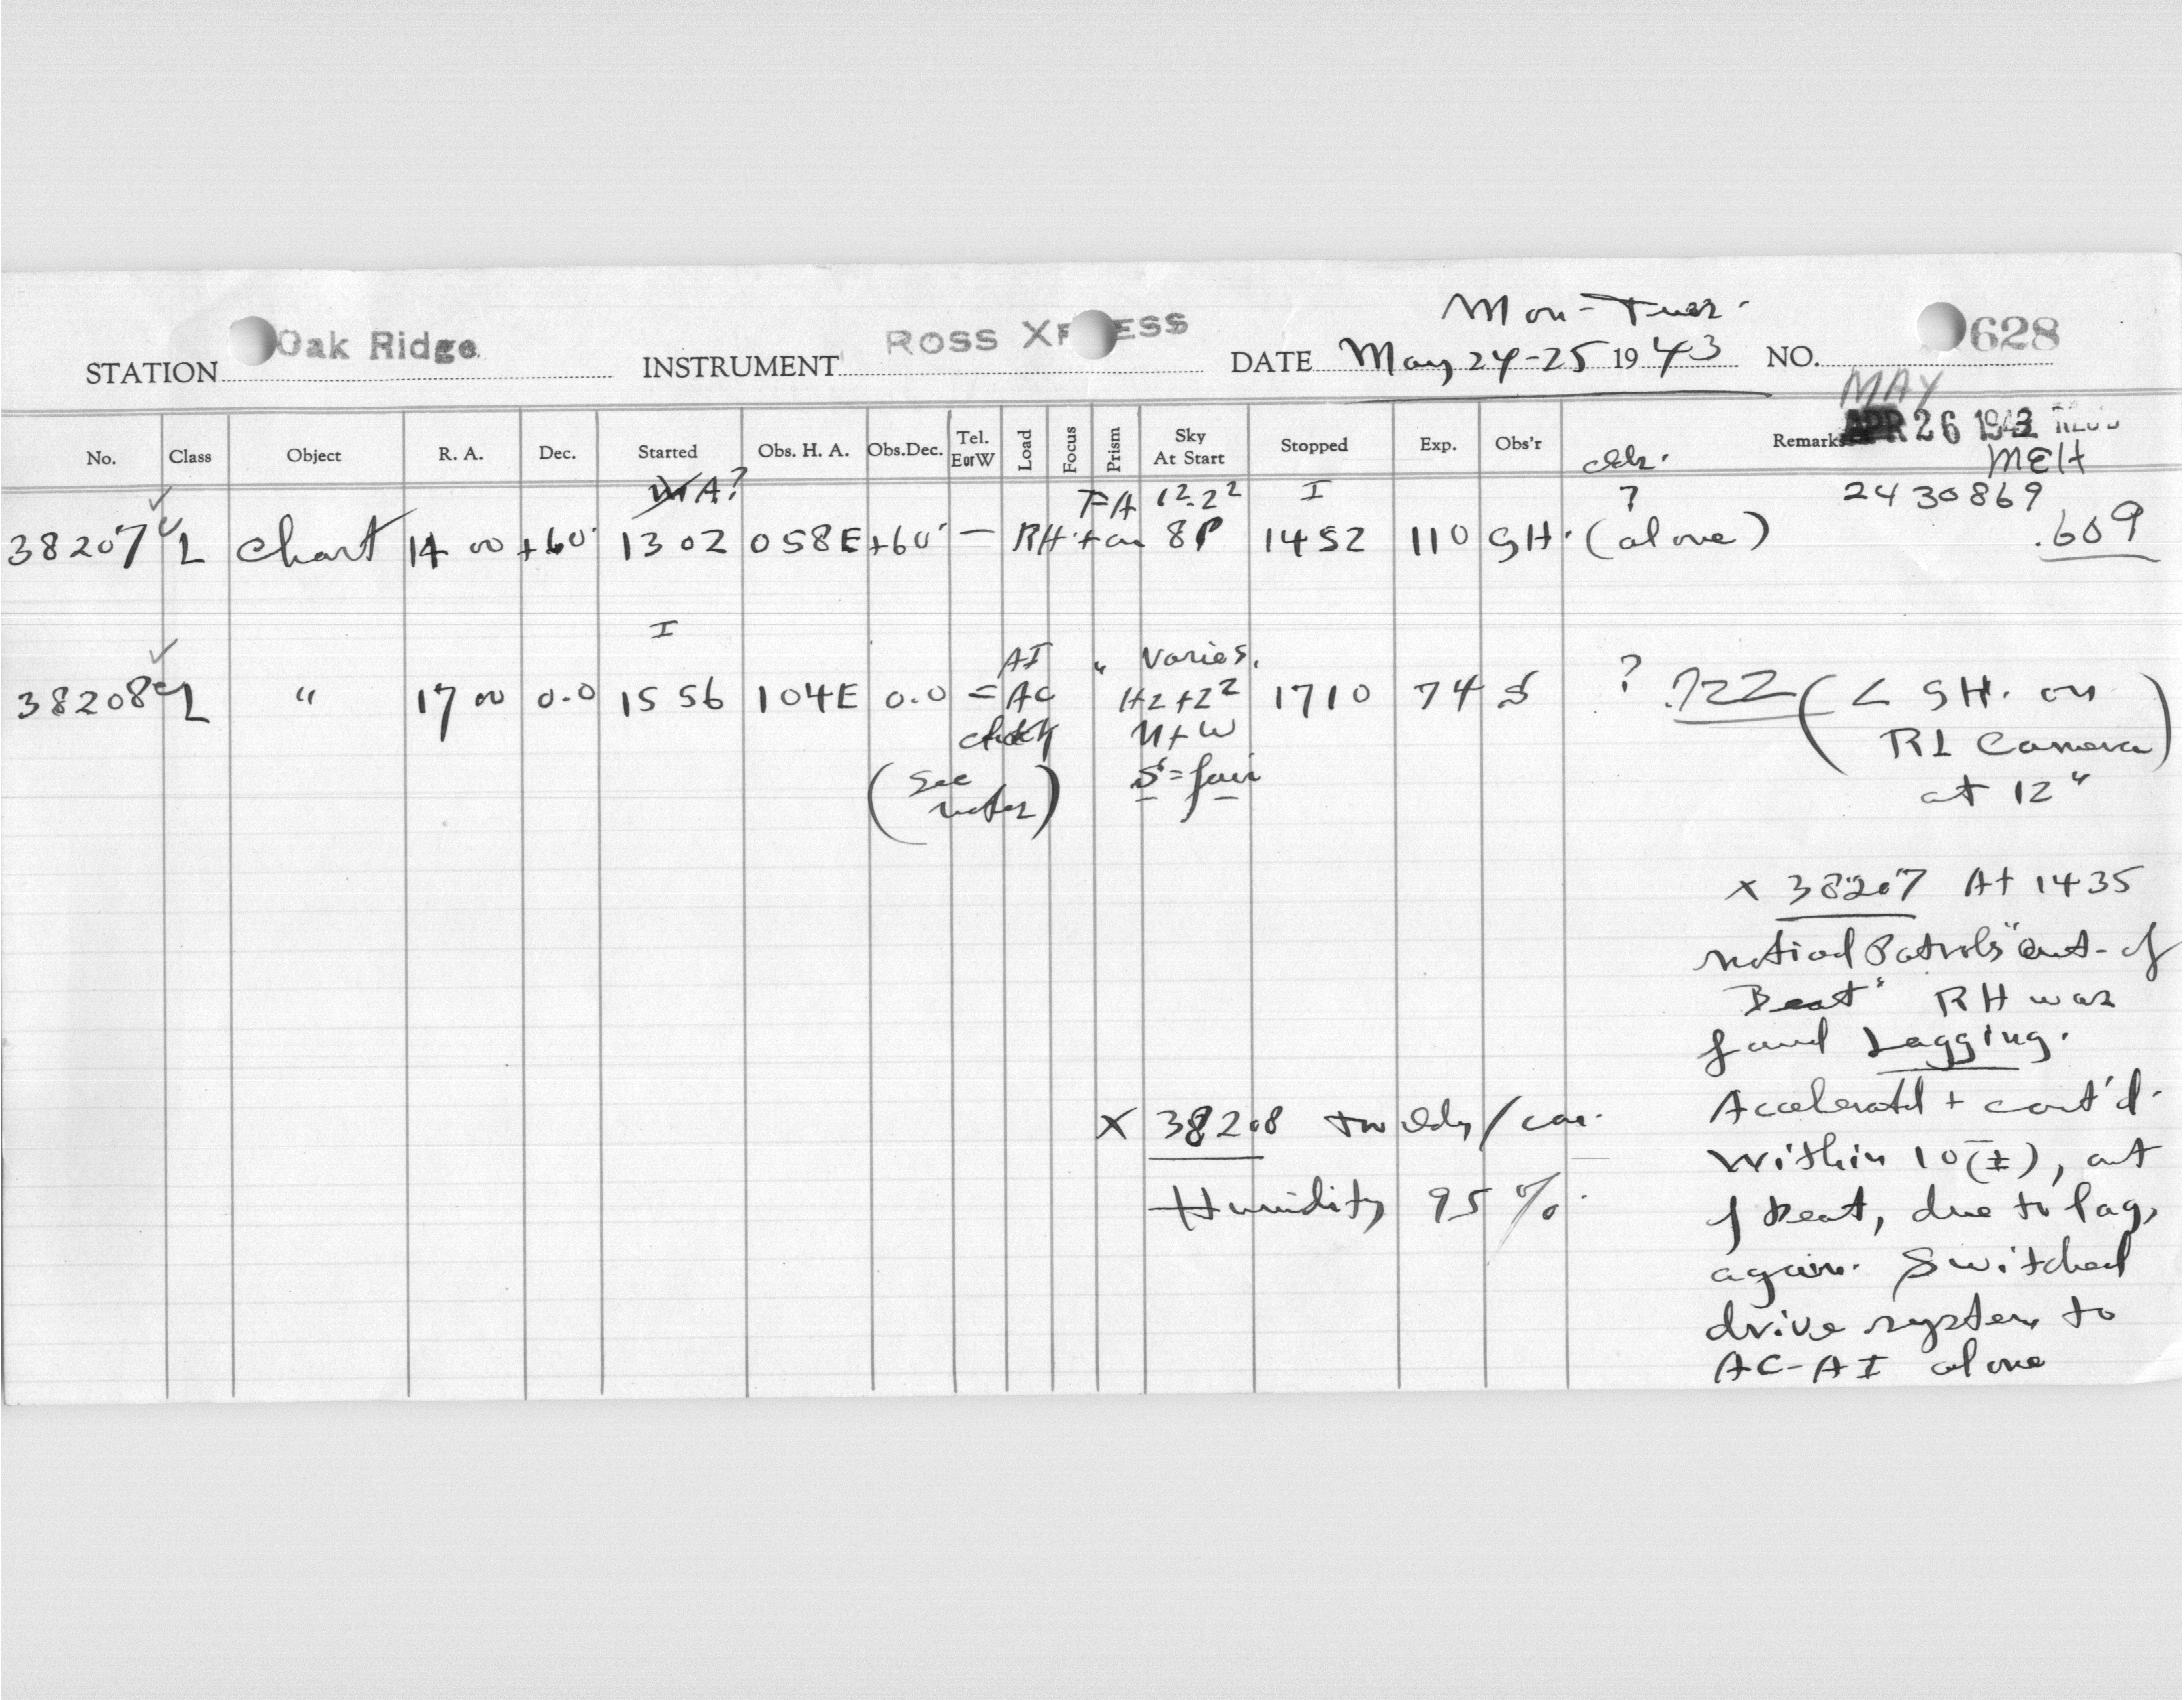 Mon-Tues.
STATION Oak Ridge INSTRUMENT ROSS XPRESS DATE May 24-25 1943 NO. 628
MAY
APR 26 1943 REC'D
No. Class Object R. A. Dec. Started Obs. H. A. Obs.Dec. Tel. E or W Load Focus Prism Sky At Start Stopped Exp. Obs'r Remarks
MEH
A? F=A 12-2² I ? 2430869
38207 L Chart 14 00 +60° 1302 058E +60° — RH 8P 1452 110 SH. (alone) .609
I
AI " Varies.
38208 L " 17 00 0.0 1556 104E 0.0 = AC Hz+Z² 1710 74 S ? .722 ( < SH. on
N+W RL Camera)
(See notes) S=fair at 12"
x 38207 At 1435
noticed Patrols "out-of
Beat" RH was
found Lagging.
Accelerated + cont'd.
x 38208
Within 10(±), out
Humidity 95%.
of beat, due to lag,
again. Switched
drive system to
AC-AI alone